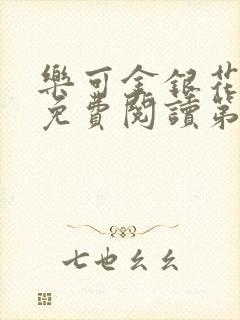 樂可金銀花
免費閱讀第
七也幺幺